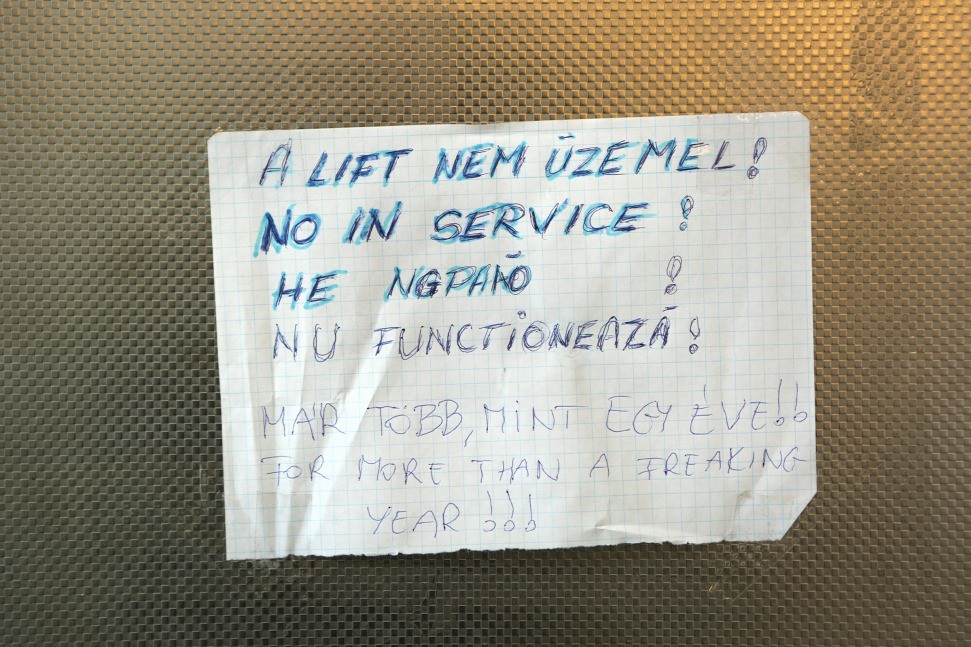 A LIFT NEM ÜZEMEL!
NO IN SERVICE!
HE !
NU FUNCTIONEAZĂ!
MÁR TÖBB, MINT EGY ÉVE!!
FOR MORE THAN A FREAKING
YEAR!!!